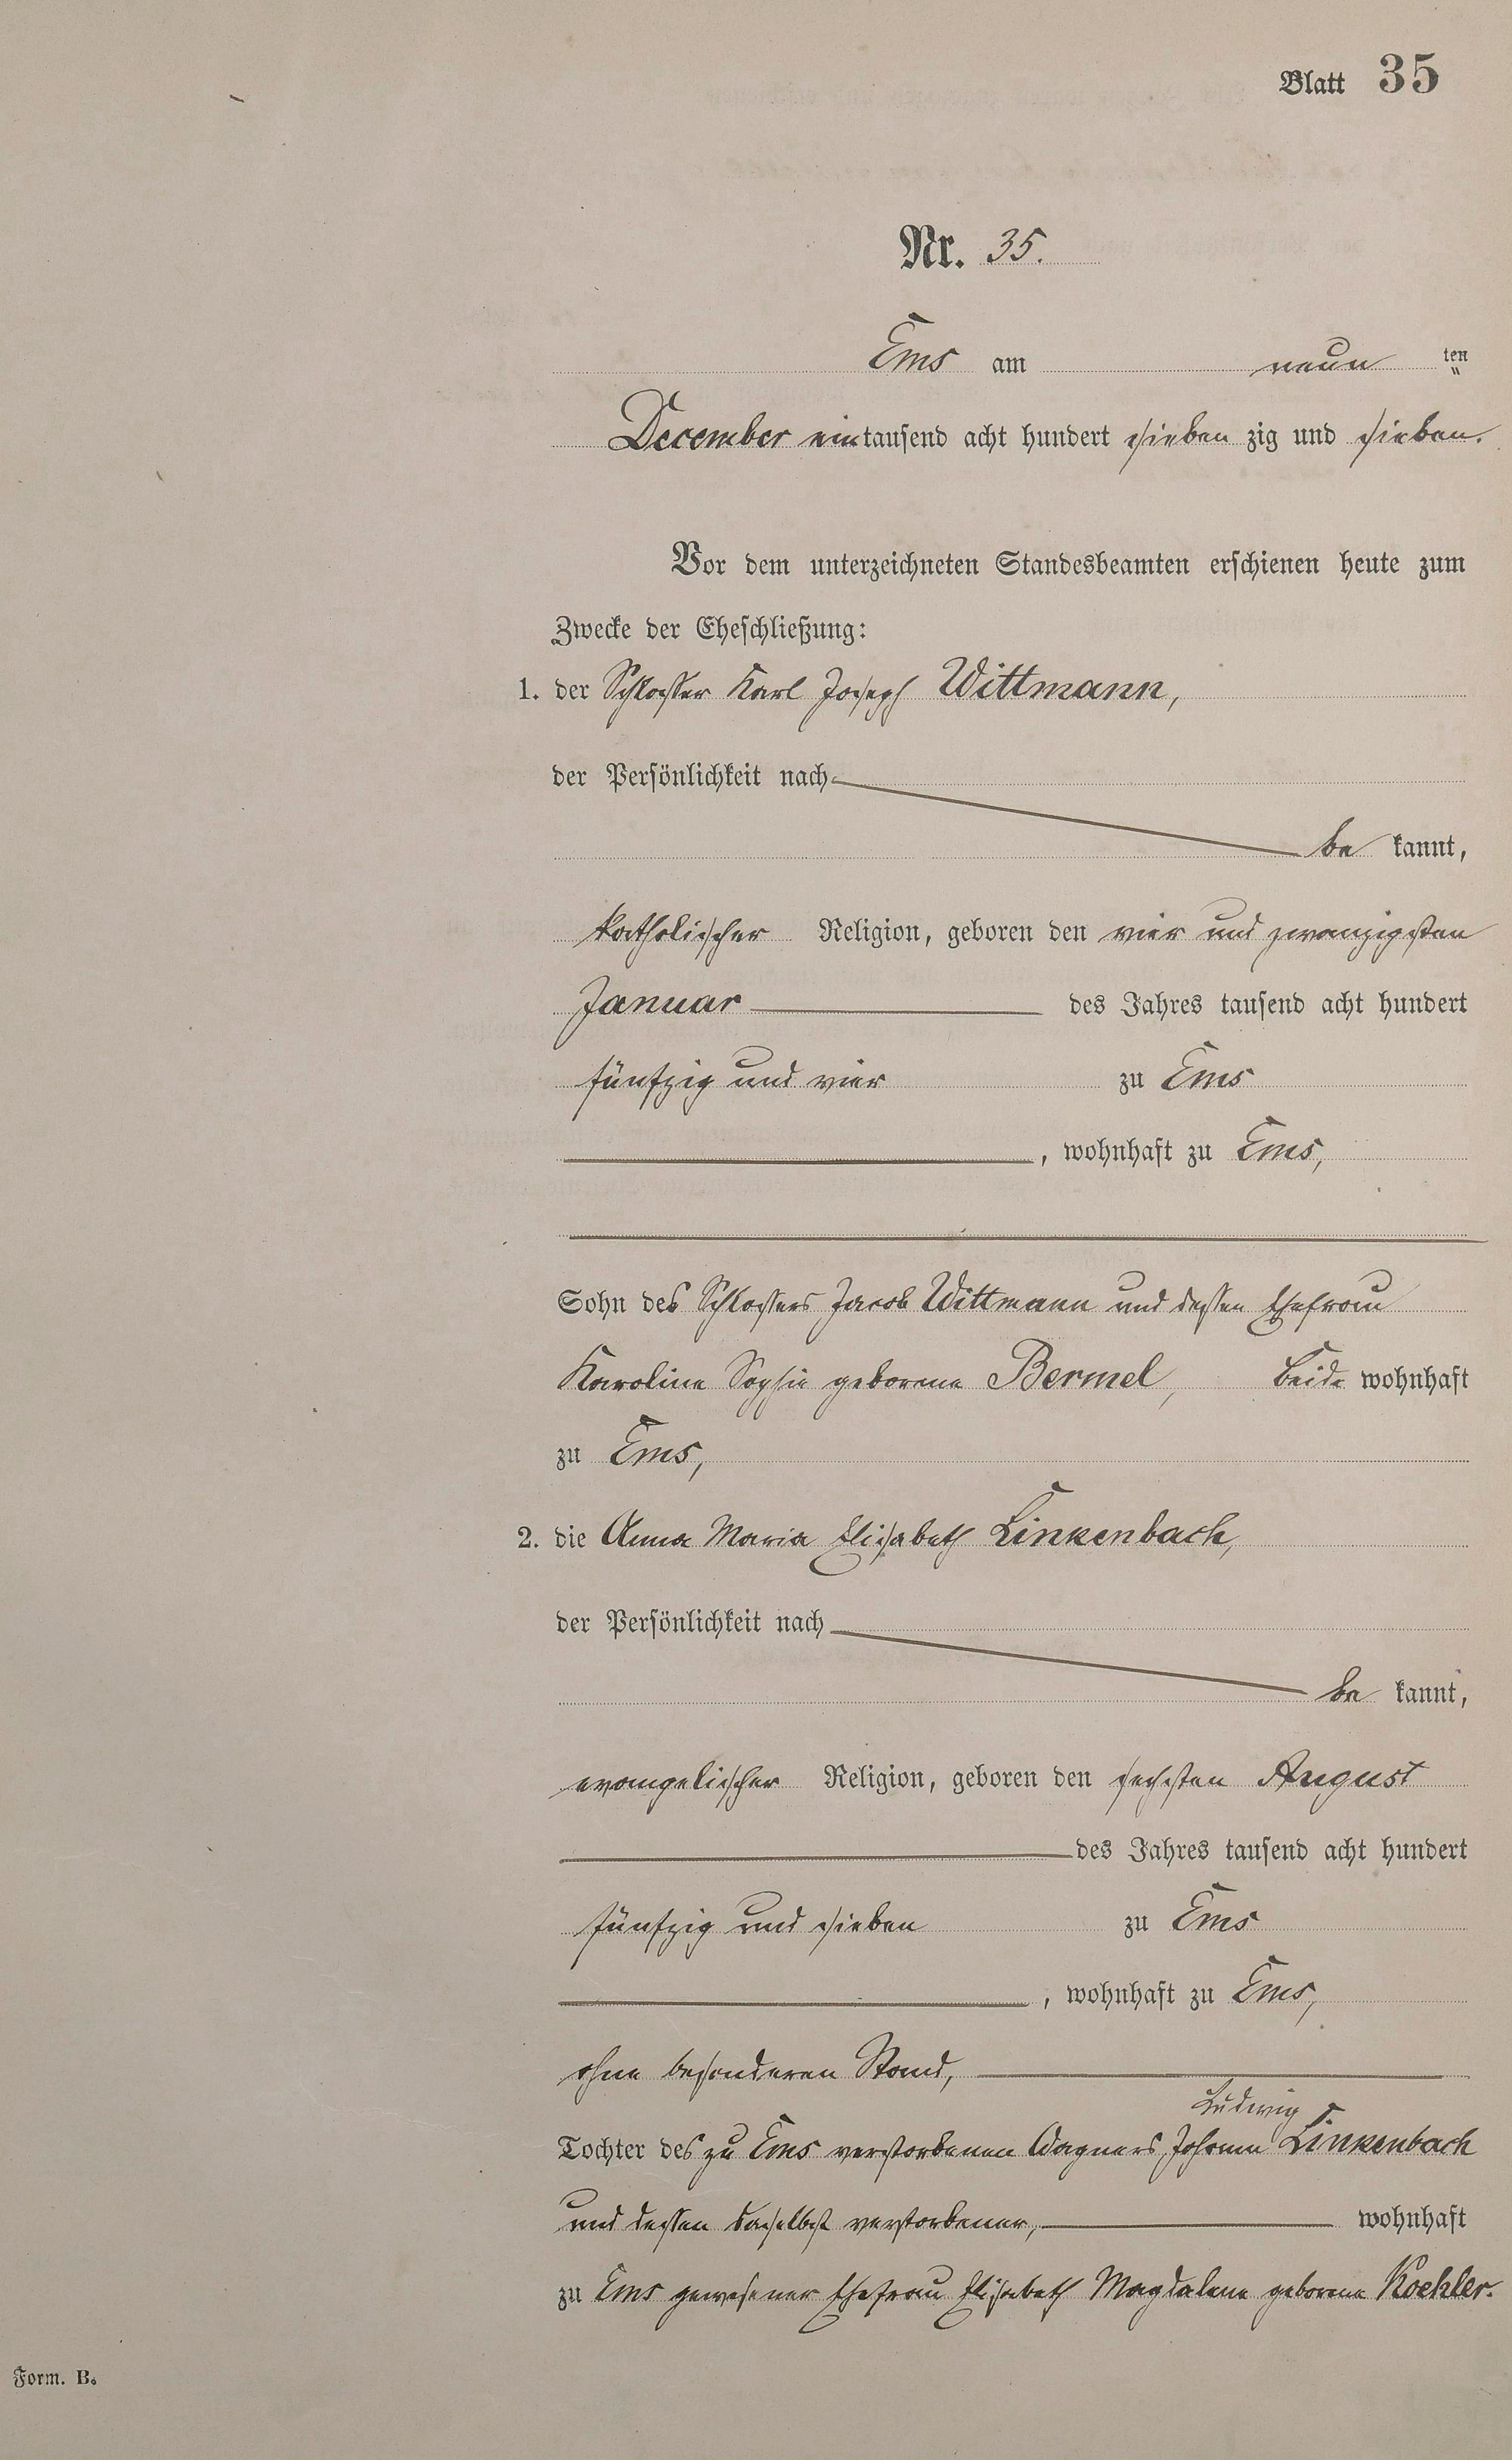 Blatt 35
Nr. 35.
Ems am neun ten
December eintausend acht hundert sieben zig und sieben.
Vor dem unterzeichneten Standesbeamten erschienen heute zum
Zwecke der Eheschließung:
1. der Schlosser Karl Joseph Wittmann,
der Persönlichkeit nach
be kannt,
katholischer Religion, geboren den vier und zwanzigsten
Januar des Jahres tausend acht hundert
fünfzig und vier zu Ems
, wohnhaft zu Ems,
Sohn des Schlossers Jacob Wittmann und dessen Ehefrau
Karoline Sophie geborene Bermel, beide wohnhaft
zu Ems,
2. die Anna Maria Elisabeth Linkenbach,
der Persönlichkeit nach
be kannt,
evangelischer Religion, geboren den sechsten August
des Jahres tausend acht hundert
fünfzig und sieben zu Ems
, wohnhaft zu Ems,
ohne besonderen Stand,
Ludwig
Tochter des zu Ems verstorbenen Wagners Johann Linkenbach
und dessen daselbst verstorbener, wohnhaft
zu Ems gewesener Ehefrau Elisabeth Magdalene geborene Koehler.
Form. B.